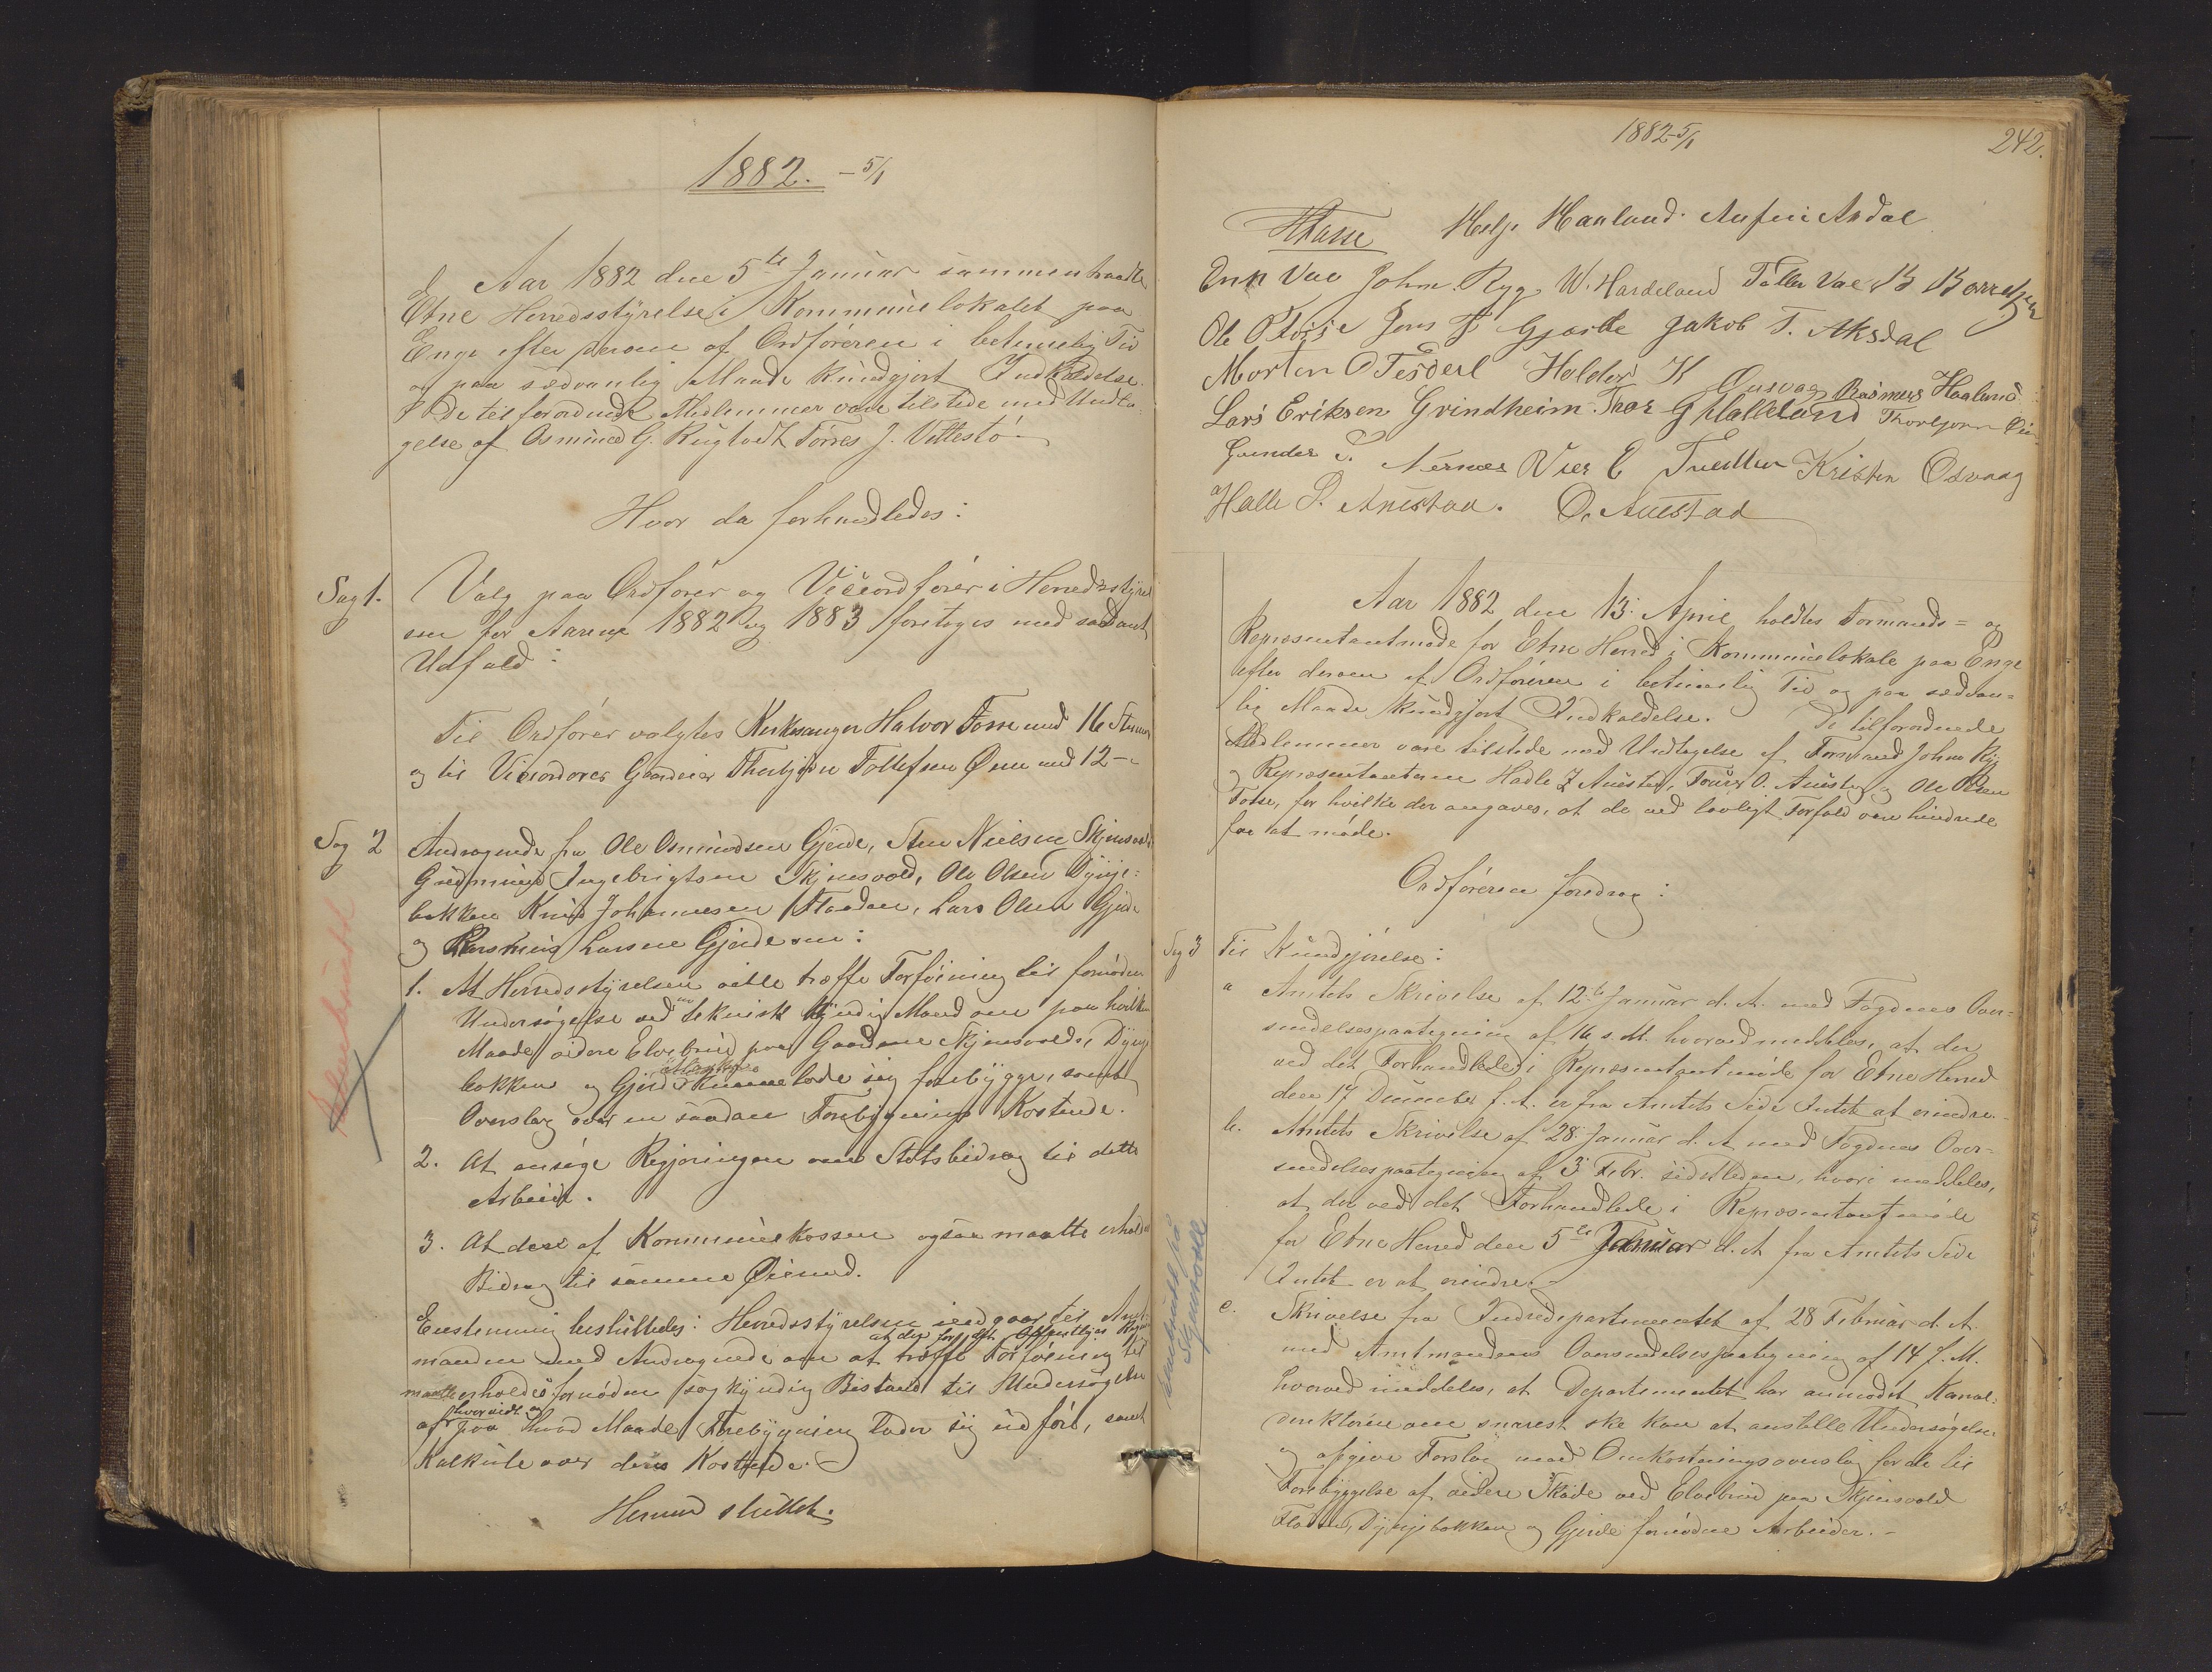 1882. – 5/1
Aar 1882 den 5te Januar sammentraadte
Etne Herredsstyrelse i Kommunelokalet paa
Enge efter derom af Ordføreren i betimelig Tid
og paa sædvanlig Maade kundgjort Indkaldelse.
De tilforordnede Medlemmer vare tilstede med Undta-
gelse af Osmund G. Rugtvedt Tørres J. Vettestø
Hvor da forhandledes:
Sag 1. Valg paa Ordfører og Viceordfører i Herredsstyrel
sen for Aarene 1882 og 1883 foretoges med saadant
Udfald:
Til Ordfører valgtes Kirkesanger Halvor Fosse med 16 Stemmer
og til Viceordfører Gaardeier Thorbjørn Tollefsen Øien med 12 –
Sag 2 Andragende fra Ole Osmundsen Gjerde, Sten Nielsen Skjensvold
Gudmund Ingebrigtsen Skjensvold, Ole Olsen Dynje-
bakken Knud Johannesen Flaaden, Lars Olsen Gjerde
og Rasmus Larsen Gjerde om:
1. At Herredsstyrelsen vilde træffe Forføining til fornøden
Undersøgelse ved en teknisk kyndig Mand om paa hvilken
Maade videre Elvebrud paa Gaardene Skjensvold, Dynje
bakken og Gjerde kunne lade sig forebygge, samt
Overslag over en saadan Forebygnings Kostende.
2. At ansøge Regjeringen om Statsbidrag til dette
Arbeide.
3. At dere af Kommunekassen ogsaa maatte erholde
Bidrag til samme Øiemed.
Enstemmig besluttedes: Herredsstyrelsen indgaar til Amt-
manden med Andragende om at træffe Forføining til
at der for det Offentliges Regning
maatte erholdes fornøden sagkyndig Bistand til Undersøgelse
af hvorvidt og paa hvad Maade Forebygning lader sig udføre, samt
Kalkule over dens Kostende.
Hermed sluttet.
Elvebrudet
1882 5/1
242.
HFosse Helje Haaland. Anfin Ardal
Enn Vae John. Ryg W. Hardeland Tollev Vae B Børretzen
Ole Ols Jens T Gjærde Jakob T. Aksdal
Morten O Tesdal Haldor K Osvaag Rasmus Haaland
Lars Eriksen Grindheim. Thor G Halleland Thorbjørn Øien
Gunder S. Nernæs Vier E Tveden Kristen Osvaag
Halle S. Austad. O. Austad
Aar 1882 den 13. April holdtes Formands= og
Repræsentantmøde for Etne Herred i Kommunelokale paa Enge
efter derom af Ordføreren i betimelig Tid og paa sædvan=
lig Maade kundgjort Indkaldelse. De tilforordnede
Medlemmer vare tilstede med Undtagelse af Formand Johne Ryg
og Repræsentanterne Halle J Austad, Tørres O. Austad og Ole Olsen
Fosse, for hvilke der angaves, at de ved lovligt Forfald vare hindrede
fra at møde.
Ordføreren foredrog:
Sag 3 Til Kundgjørelse:
a Amtets Skrivelse af 12te Januar d. A. med Fogdens Over-
sendelsespaategning af 16 s. M. hvorved meddeles, at der
ved det Forhandlede i Repræsentantmøde for Etne Herred
den 17 December f. A. er fra Amtets Side Intet at erindre.
b. Amtets Skrivelse af 28. Januar d. A med Fogdens Over-
sendelsespaategning af 3 Febr. sidstleden, hvori meddeles,
at der ved det Forhandlede i Repræsentantmøde
for Etne Herred den 5te Januar d. A fra Amtets Side
Intet er at erindre.
c. Skrivelse fra Indredepartementet af 28 Februar d. A.
med Amtmandens Oversendelsespaategning af 14 f. M.
hvorved meddeles, at Departementet har anmodet Kanal-
direktøren om snarest ske kan at anstille Undersøgelser
og afgive Forslag med Omkostningsoverslag for de til
Forebyggelse af videre Skade ved Elvebrud paa Skjensvold
Flaaden, Dynjebakken og Gjerde fornødne Arbeider. –
Elvebrudet på
Skjensvold